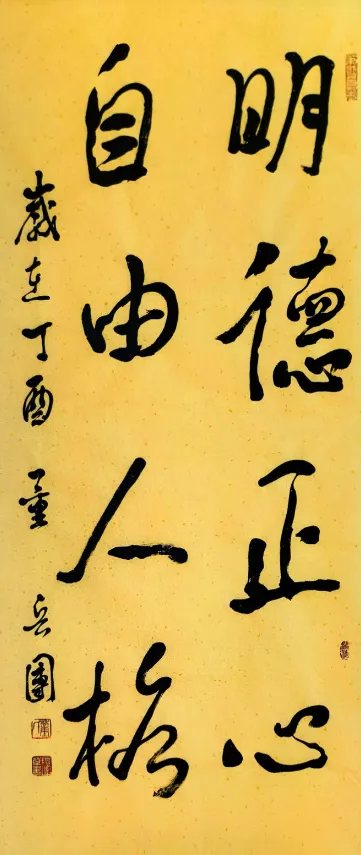 明德正心
自由人格
歲在丁酉 童岳團